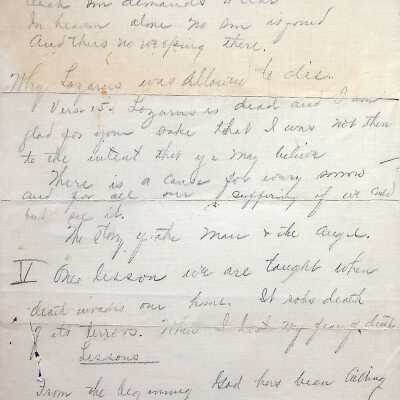 each sin demands a tear
In heaven alone no sin is found
And thus no weeping there.
Why Lazarus was allowed to die.
Verse 15. Lazarus is dead and I am
glad for your sake that I was not then
to the intent that ye may believe
There is a cause for every sorrow
and for all our suffering if we could
but see it.
The story of the Man & the Angel.
V One lesson we are taught when
death invades our home. It robs death
of its terrors. When I lost my fear of death
Lessons
From the beginning God has been calling